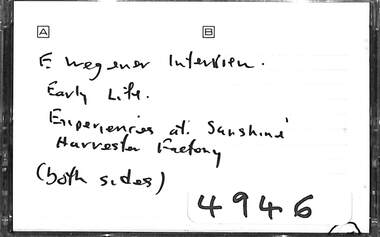 A B
F. Wegener Interview.
Early Life.
Experiences at 'Sunshine'
Harvester Factory
(both sides)
4946